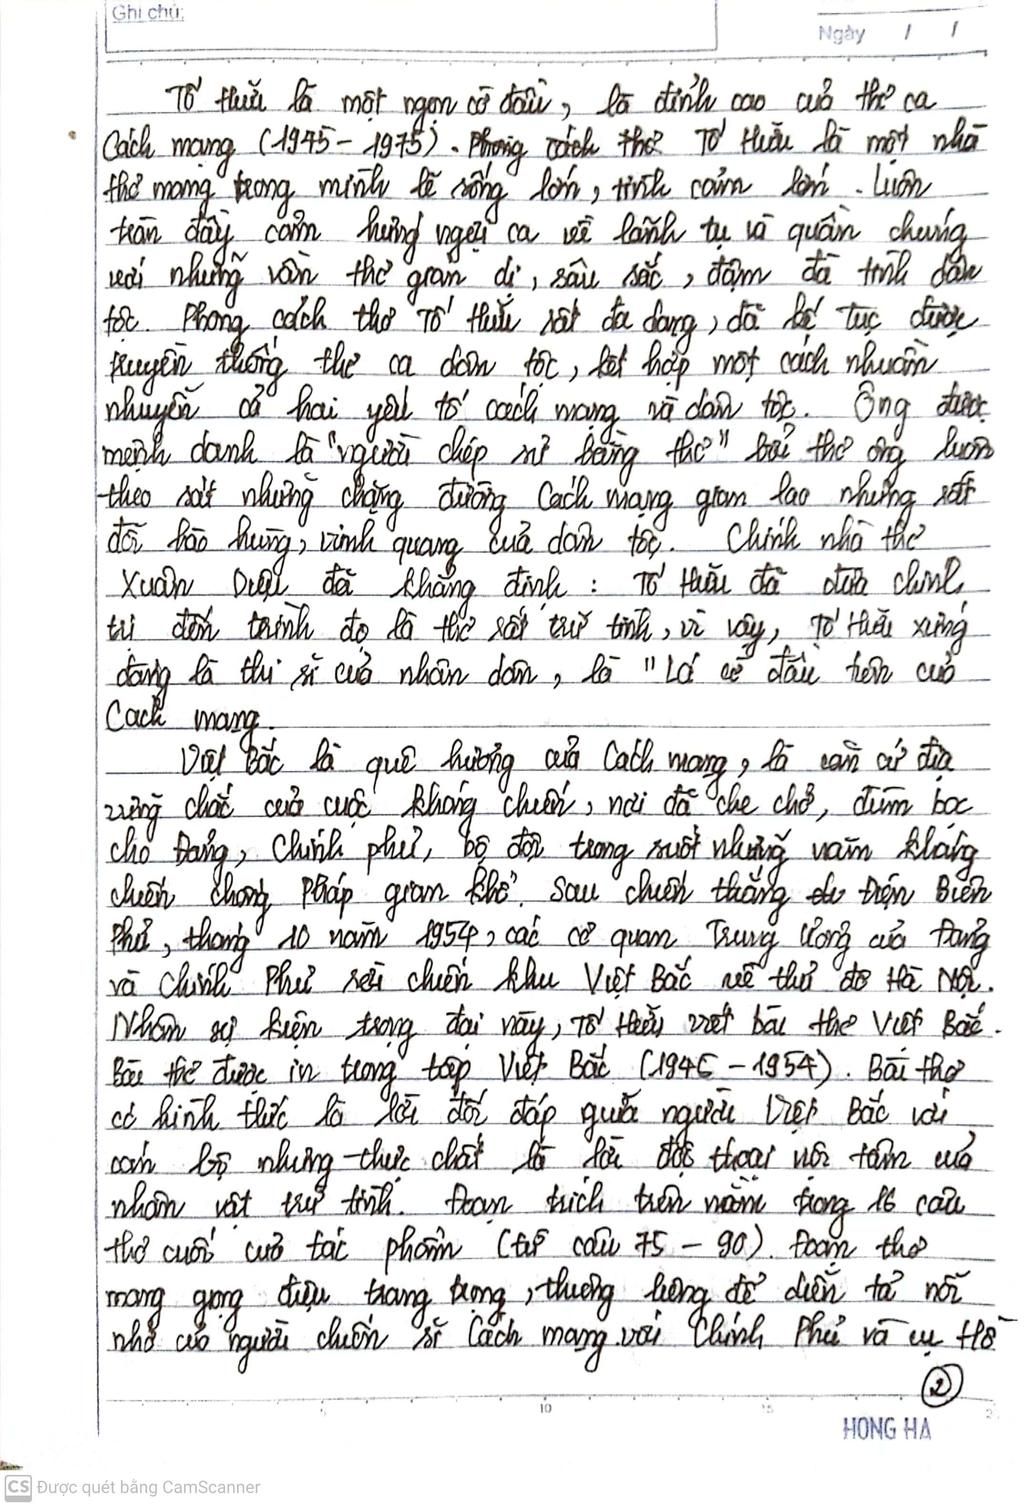 Ghi chú:
Ngày / /
Tố Hữu là một ngọn cờ đầu, là đỉnh cao của thơ ca
Cách mạng (1945 - 1975). Phong cách thơ Tố Hữu là một nhà
thơ mang trong mình lẽ sống lớn, tình cảm lớn. Luôn
tràn đầy cảm hứng ngợi ca về lãnh tụ và quần chúng
với những vần thơ giản dị, sâu sắc, đậm đà tính dân
tộc. Phong cách thơ Tố Hữu rất đa dạng, đã kế tục được
truyền thống thơ ca dân tộc, kết hợp một cách nhuần
nhuyễn cả hai yếu tố cách mạng và dân tộc. Ông được
mệnh danh là "người chép sử bằng thơ" bởi thơ ông luôn
theo sát những chặng đường Cách mạng gian lao nhưng rất
đỗi hào hùng, vinh quang của dân tộc. Chính nhà thơ
Xuân Diệu đã khẳng định: Tố Hữu đã đưa chính
trị đến trình độ là thơ rất trữ tình, vì vậy, Tố Hữu xứng
đáng là thi sĩ của nhân dân, là "Lá cờ đầu tiên của
Cách mạng.
Việt Bắc là quê hương của Cách mạng, là căn cứ địa
vững chắc của cuộc kháng chiến, nơi đã che chở, đùm bọc
cho Đảng, Chính phủ, bộ đội trong suốt những năm kháng
chiến chống Pháp gian khổ. Sau chiến thắng Điện Biên
Phủ, tháng 10 năm 1954, các cơ quan Trung Ương của Đảng
và Chính Phủ rời chiến khu Việt Bắc về thủ đô Hà Nội.
Nhân sự kiện trọng đại này, Tố Hữu viết bài thơ Việt Bắc.
Bài thơ được in trong tập Việt Bắc (1946 - 1954). Bài thơ
có hình thức là lời đối đáp giữa người Việt Bắc với
cán bộ nhưng thực chất là lời độc thoại nội tâm của
nhân vật trữ tình. Đoạn trích trên nằm trong 16 câu
thơ cuối của tác phẩm (từ câu 75 - 90). Đoạn thơ
mang giọng điệu trang trọng, thương lòng để diễn tả nỗi
nhớ của người chiến sĩ Cách mạng với Chính Phủ và cụ Hồ
2
10 15
HONG HA
CS Được quét bằng CamScanner